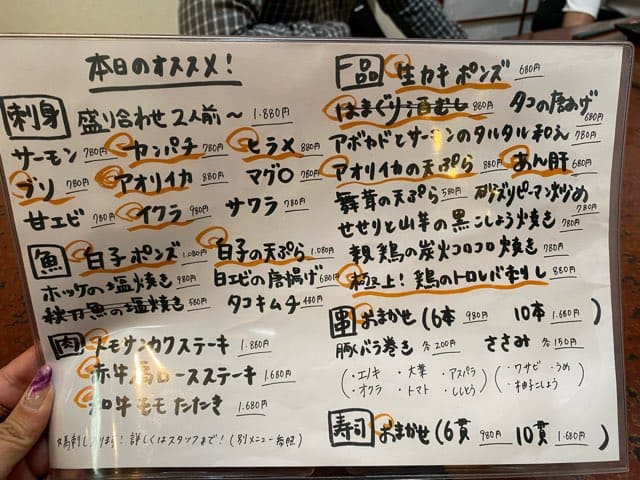 本日のオススメ!
刺身 盛り合わせ2人前~ 1.880円
サーモン 780円 カンパチ 780円 ヒラメ 880円
ブリ 780円 アオリイカ 880円 マグロ 780円
甘エビ 780円 イクラ 980円 サワラ 780円
魚 白子ポンズ 1.080円 白子の天ぷら 1.080円
ホッケの塩焼き 980円 白エビの唐揚げ 680円
秋刀魚の塩焼き 580円 タコキムチ 480円
肉 トモサンカクステーキ 1.880円
赤牛肩ロースステーキ 1.680円
和牛モモたたき 1.680円
馬刺しあります!詳しくはスタッフまで!(別メニュー参照)
一品 生カキポンズ 680円
はまぐり酒むし 880円 タコの唐あげ 680円
アボカドとサーモンのタルタル和え 780円
アオリイカの天ぷら 880円 あん肝 680円
舞茸の天ぷら 580円 砂ズリピーマン炒め 780円
せせりと山芋の黒こしょう焼き 780円
親鶏の炭火コロコロ焼き 780円
極上!鶏のトロレバ刺し 880円
串 おまかせ(6本 980円 10本 1.680円)
豚バラ巻き 各200円 ささみ 各150円
(・エノキ ・大葉 ・アスパラ (・ワサビ ・うめ
・オクラ ・トマト ・ししとう) ・柚子こしょう)
寿司 おまかせ(6貫 980円 10貫 1.680円)